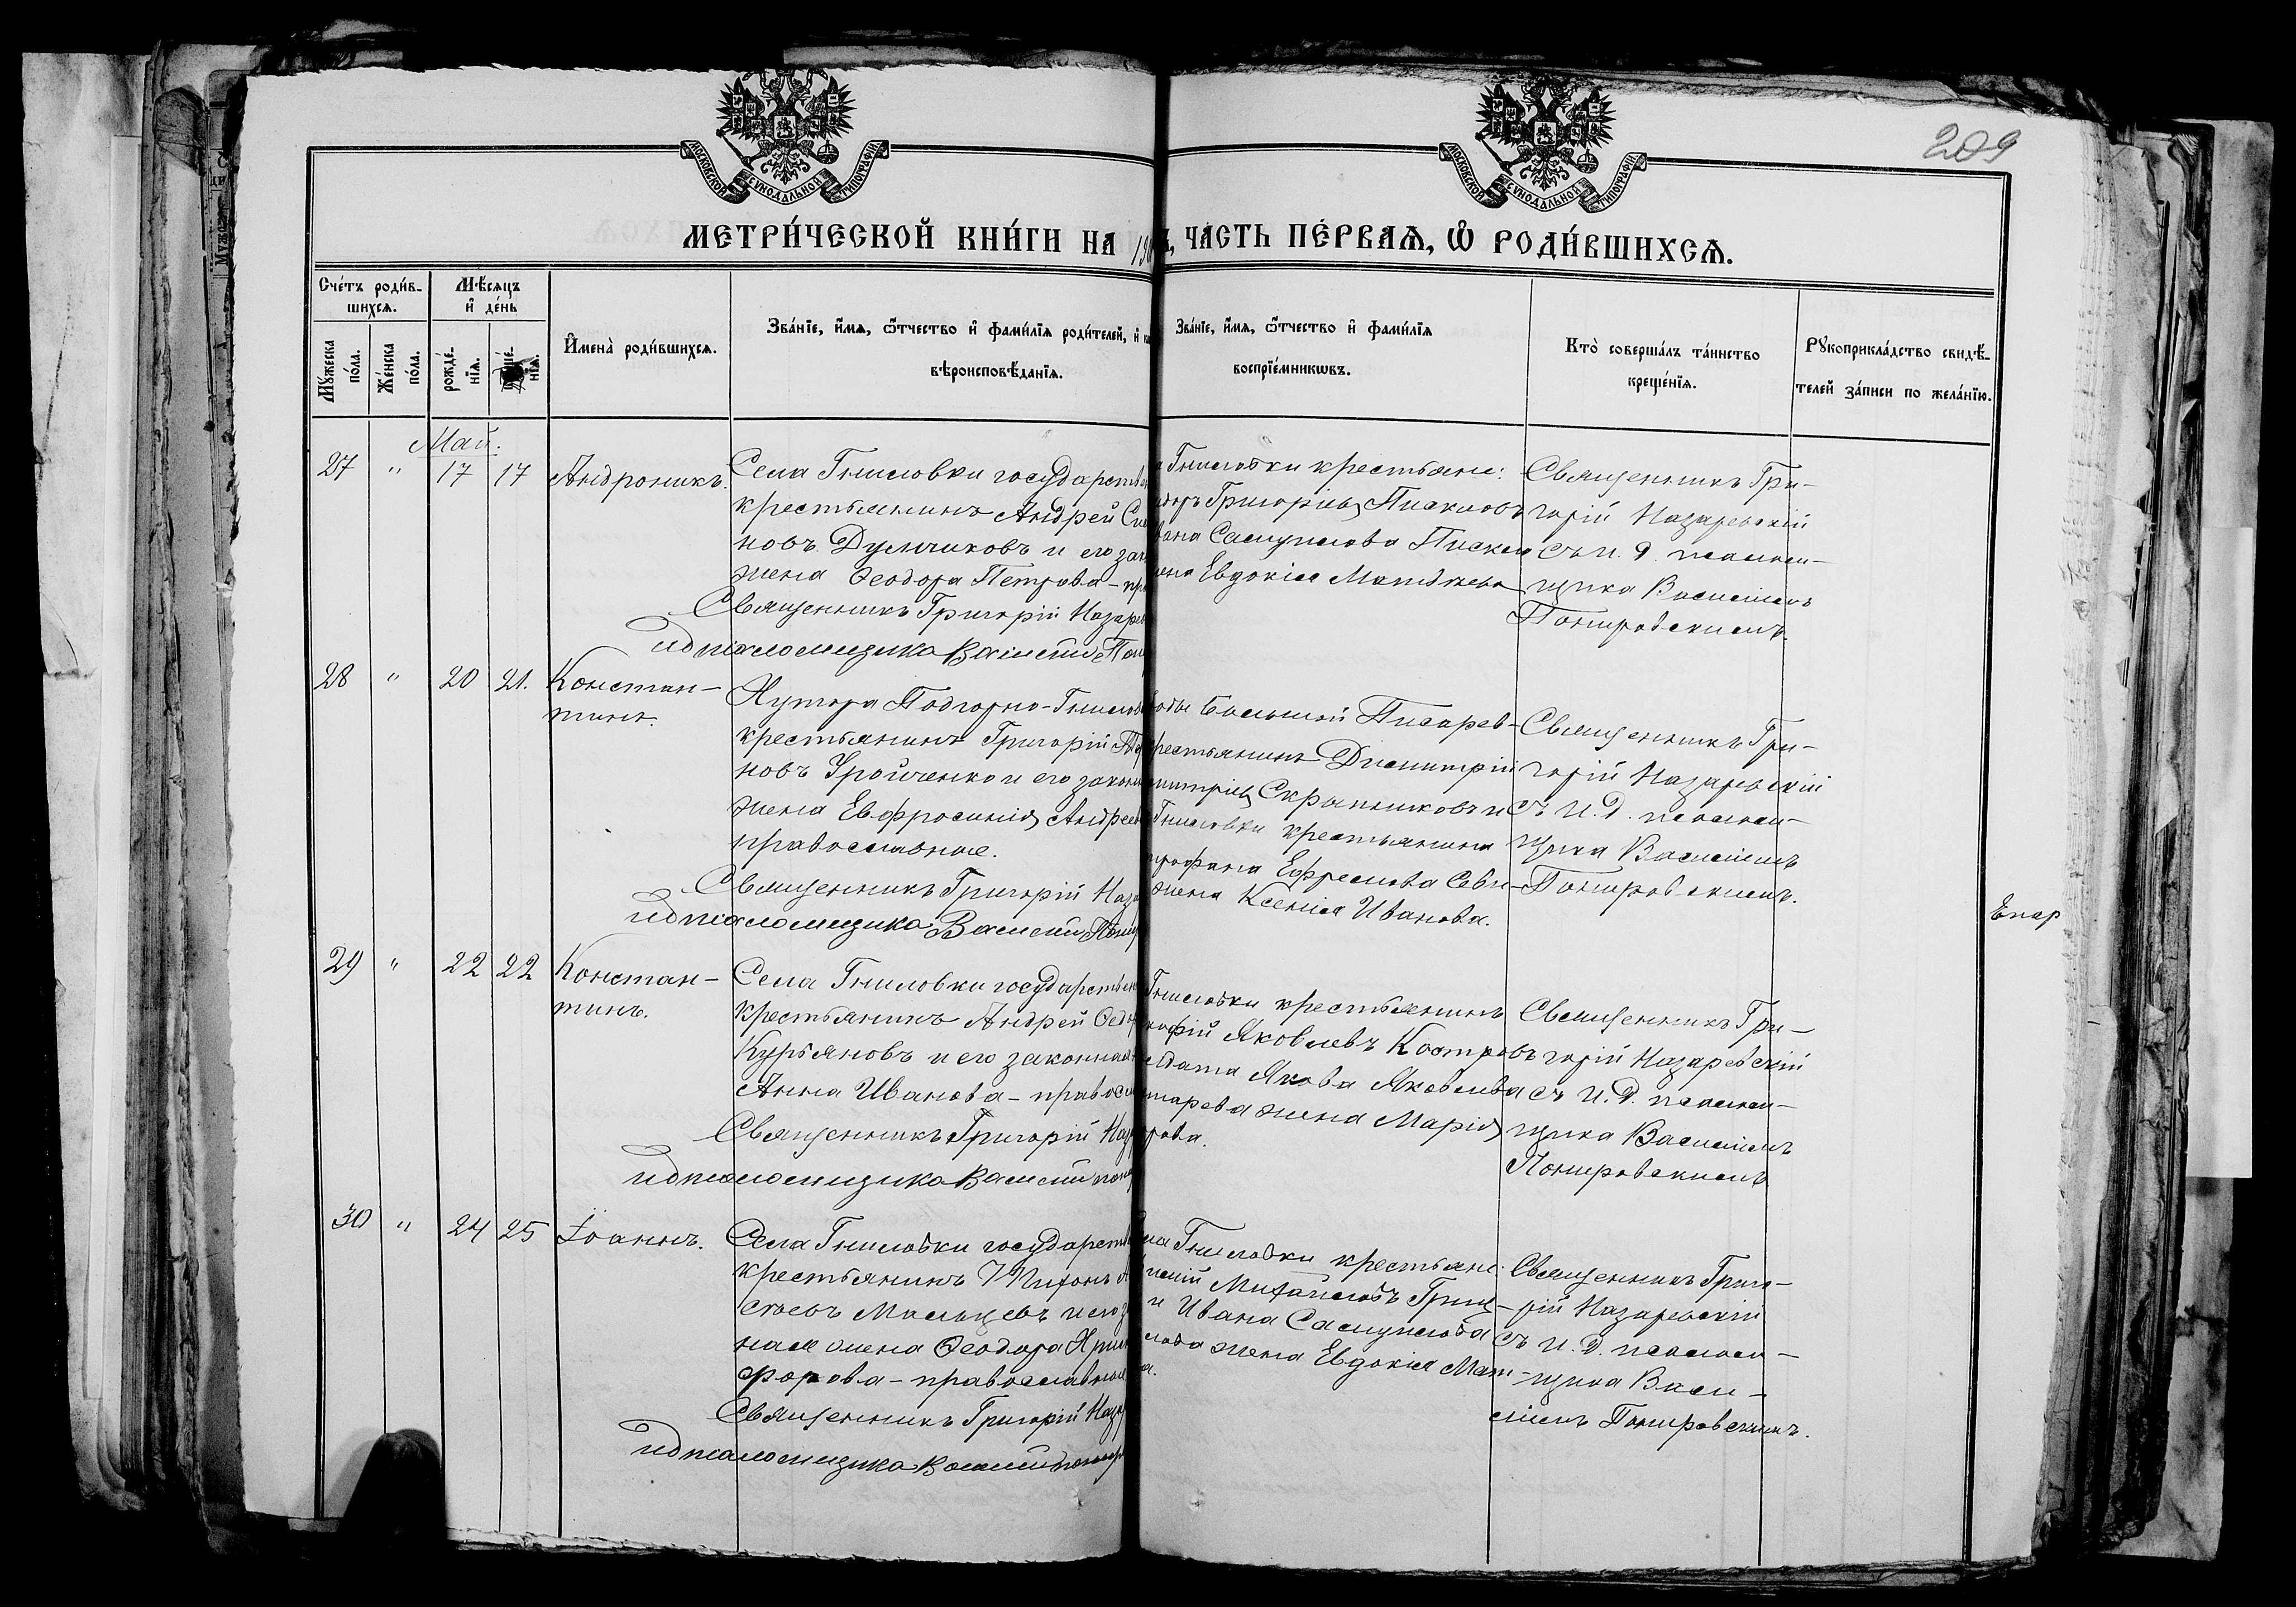 209
МОСКОВСКОЙ СѴНОДАЛЬНОЙ ТИПОГРАФІИ
МОСКОВСКОЙ СѴНОДАЛЬНОЙ ТИПОГРАФІИ
МЕТРИ́ЧЕСКОЙ КНИ́ГИ НА 19 ЧАСТЬ ПЕ́РВАѦ, Ѡ҆ РОДИ́ВШИХСѦ.
Сче́тъ роди́в-
шихсѧ.
Мꙋ́жеска по́ла.
Же́нска по́ла.
Мѣ́сѧцъ
и҆ де́нь
рожде́-
нїѧ.
нїѧ.
И҆мена̀ роди́вшихсѧ.
Зва́нїе, и҆́мѧ, ѻ҆́тчество и҆ фами́лїѧ роди́телей, и҆
вѣроисповѣ́данїѧ.
Зва́нїе, и҆́мѧ, ѻ҆́тчество и҆ фами́лїѧ
воспрїе́мникѡвъ.
Кто̀ соверша́лъ та́инство
креще́нїѧ.
Рꙋкоприкла́дство свидѣ́-
телей за́писи по жела́нїю.
Май.
27 " 17 17 Андроникъ.
Села Гниловки государств
крестьянинъ Андрей Си
новъ Думчиковъ и его зак
жена Ѳеодора Петрова – пр
Священникъ Григорій Назарев
ид псаломщика Василій Пон
Гниловки крестьяне:
Григоріевъ Писклов
вана Самуилова Пискл
Евдокія Матвѣева
Священникъ Гри-
горій Назаревскій
съ и. д. псалом-
щика Василіемъ
Понировскимъ.
28 " 20 21. Констан-
тинъ.
Хутора Подгорно-Гнилов
крестьянинъ Григорій
новъ Тройченко и его законн
жена Евфросинія Андреев
православные.
Священникъ Григорій Наза
ид псаломщика Василій Пони
Большой Писарев-
крестьянинъ Димитрій
митріевъ Скрыпниковъ и
Гниловки крестьянина
трофана Ефремова Сви-
жена Ксенія Иванова.
Священникъ Гри-
горій Назаревскій
съ и. д. псалом-
щика Василіемъ
Понировскимъ.
Епар
29 " 22 22 Констан-
тинъ.
Села Гниловки государствен
крестьянинъ Андрей Ѳедор
Курьяновъ и его законная
Анна Иванова – правосл
Священникъ Григорій Наз
ид псаломщика Василій пони
Гниловки крестьянинъ
кофій Яковлевъ Костров
лдата Якова Яковлева
тарева жена Марія
рова.
Священникъ Гри-
горій Назаревскій
съ и. д. псалом-
щика Василіемъ
Понировскимъ
30 " 24 25 Іоаннъ.
Села Гниловки государств
крестьянинъ Тихонъ
Мальцевъ и его з
ная жена Ѳеодора Хри
форова – православные
Священникъ Григорій Наза
ид псаломщика Василій понир
Гниловки крестьяне:
Михайловъ Гриц-
и Ивана Самуилова
лова жена Евдокія Мат-
а.
Священникъ Григо-
рій Назаревскій
съ и. д. псалом-
щика Васи-
ліемъ Понировскимъ.